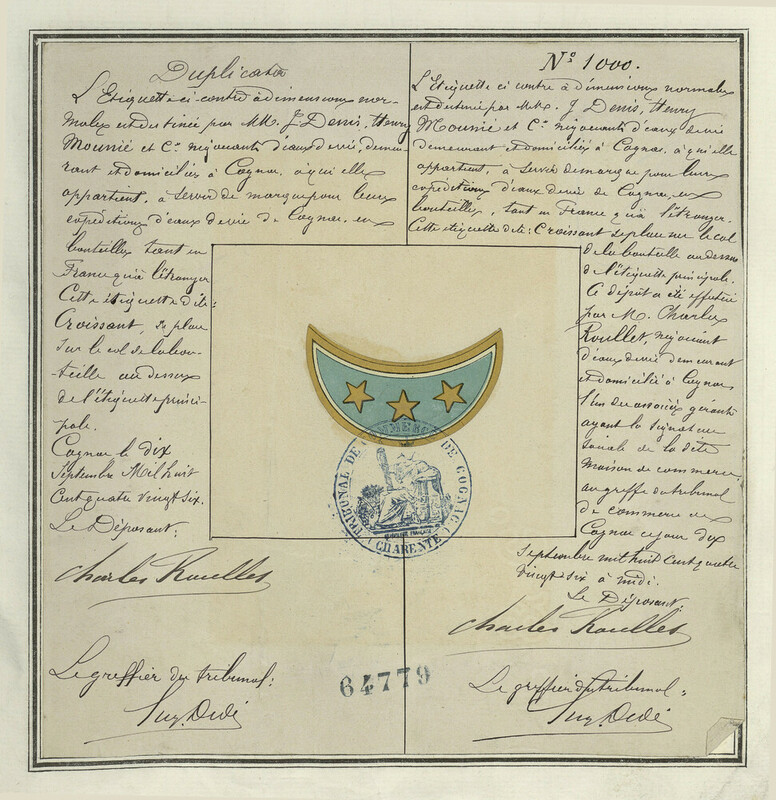 Duplicata
L'Etiquette ci-contre à dimensions nor-
males est destinée par MM. J. Denis, Henry
Mounié et Cie négociants d'eaux de vie, demeu-
rant et domiciliés à Cognac, à qui elle
appartient, à servir de marque pour leurs
expéditions d'eaux de vie de Cognac, en
bouteilles tant en
France qu'à l'étranger
Cette étiquette dite:
Croissant, se place
sur le col de la bou-
teille au dessus
de l'étiquette princi-
pale.
Cognac le dix
Septembre Mil huit
Cent quatre vingt six.
Le Déposant:
Charles Roullet
Le greffier du tribunal:
No 1000.
L'Etiquette ci contre à dimensions normales
est destinée par MM. J. Denis, Henry
Mounié et Cie négociants d'eaux de vie
demeurant et domiciliés à Cognac, à qui elle
appartient, à servir de marque pour leurs
expéditions d'eaux de vie de Cognac, en
bouteilles, tant en France qu'à l'étranger.
Cette étiquette dite: Croissant se place sur le col
de la bouteille au dessus
de l'étiquette principale.
Ce dépôt a été effectué
par M. Charles
Roullet, négociant
d'eaux de vie demeurant
et domicilié à Cognac
l'un des associés gérants
ayant la signature
sociale de la dite
maison de commerce,
au greffe du tribunal
de commerce de
Cognac ce jour dix
Septembre mil huit cent quatre
vingt six à midi.
Le Déposant:
Charles Roullet
Le greffier du tribunal:
TRIBUNAL DE COMMERCE DE COGNAC
CHARENTE
64779